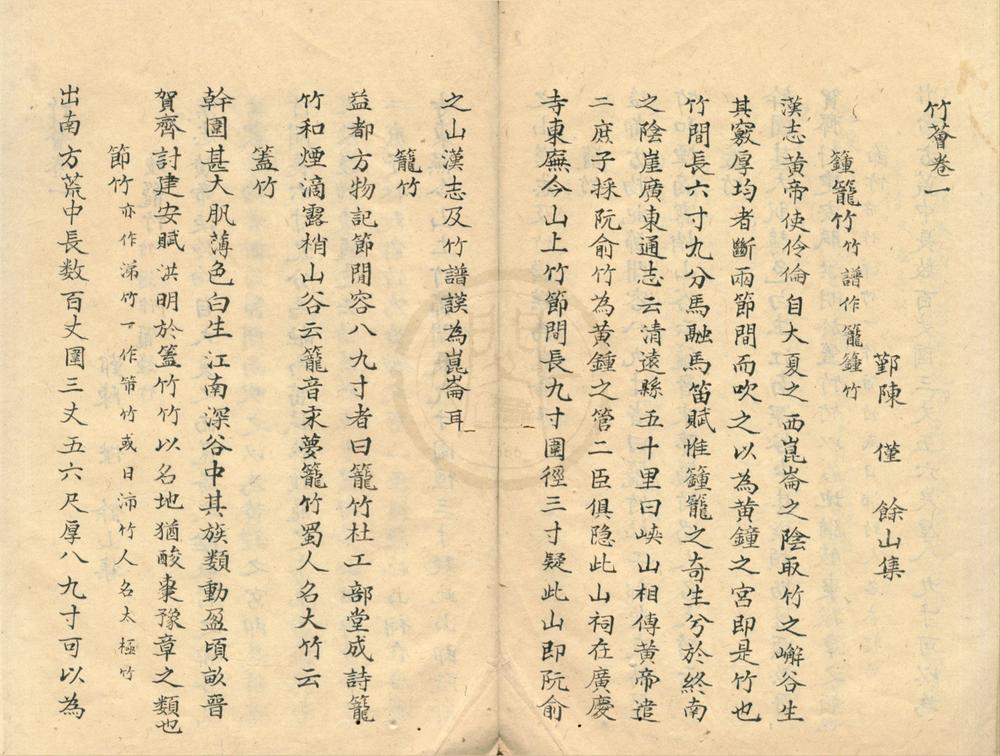 竹薈卷一
鄞陳 僅 餘山集
籦籠竹竹譜作籠鍾竹
漢志黃帝使伶倫自大夏之西崑崙之陰取竹之嶰谷生
其竅厚均者斷兩節間而吹之以為黃鐘之宮即是竹也
竹間長六寸九分馬融馬笛賦惟籦籠之奇生兮於終南
之陰崖廣東通志云清遠縣五十里曰峽山相傳黃帝遣
二庶子採阮俞竹為黃鍾之管二臣俱隐此山祠在廣慶
寺東廡今山上竹節間長九寸圍徑三寸疑此山即阮俞
之山漢志及竹譜誤為崑崙耳
籠竹
益都方物記節間容八九寸者曰籠竹杜工部堂成詩籠
竹和煙滴露梢山谷云籠音夛夢籠竹蜀人名大竹云
蓋竹
幹圍甚大肌薄色白生江南深谷中其族類動盈頃畝晉
賀齊討建安賦洪明於蓋竹竹以名地猶酸棗豫章之類也
節竹亦作涕竹一作筛竹或曰沛竹人名太極竹
出南方荒中長数百丈圍三丈五六尺厚八九寸可以為